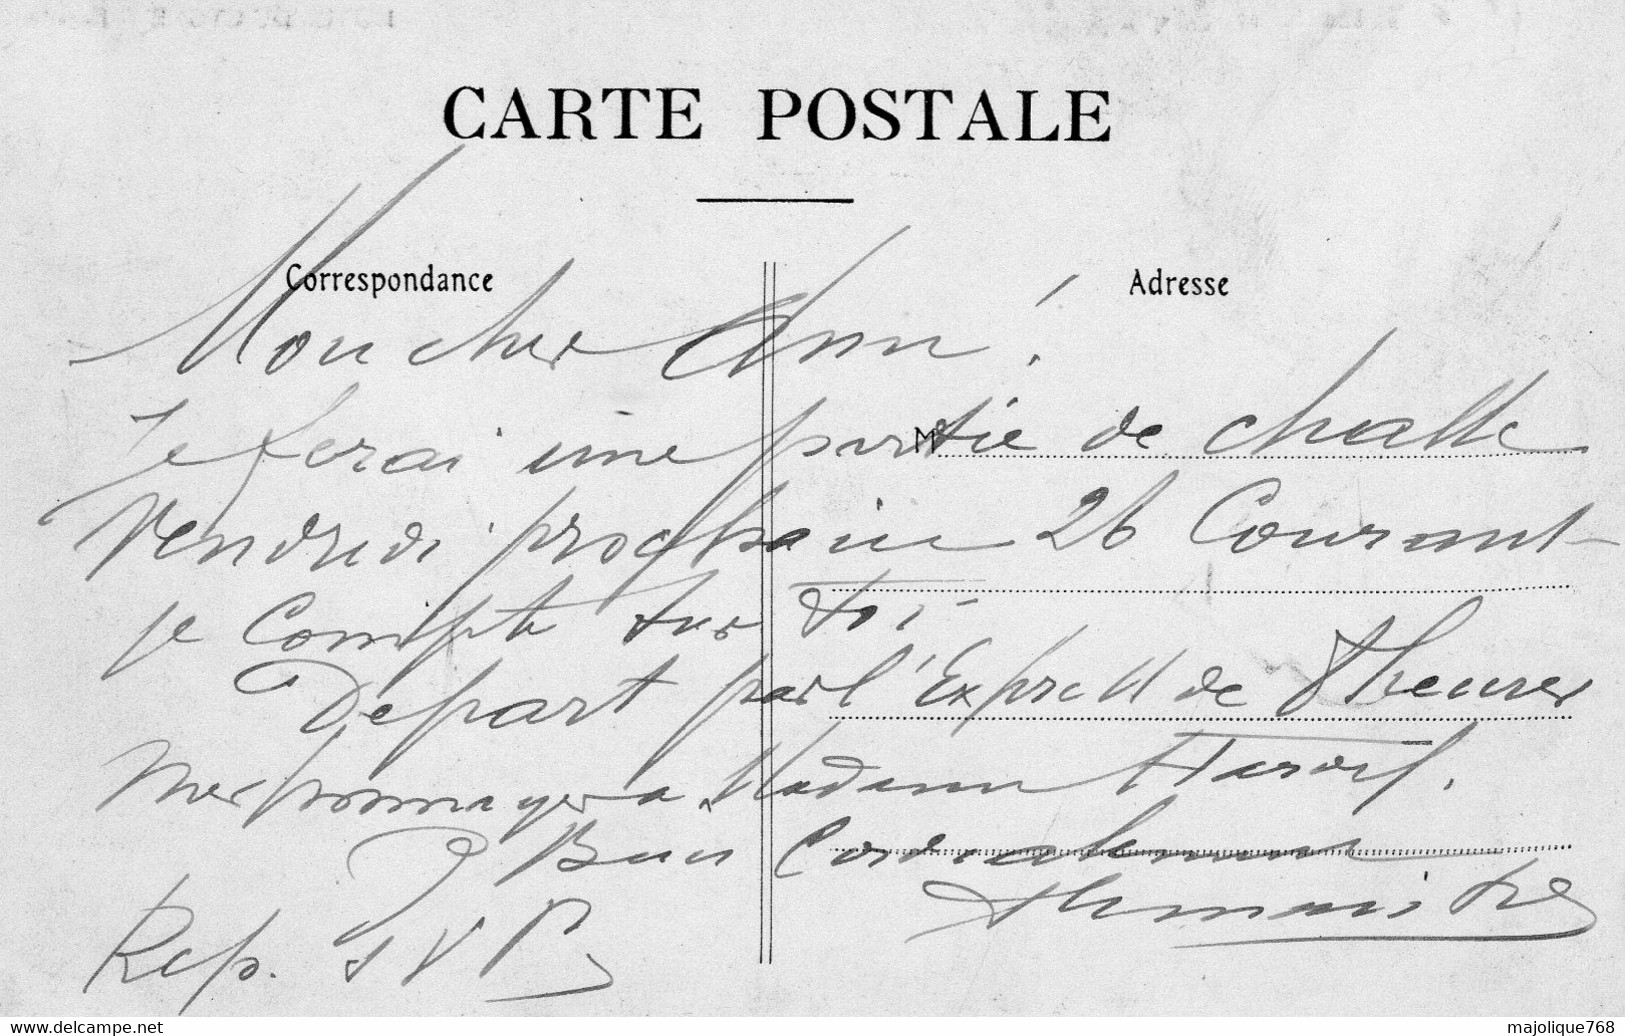 CARTE POSTALE
Correspondance
Adresse
Mon cher Ami !
Je ferai une partie de chasse
Vendredi prochain 26 Courant
je Compte sur toi
Départ par l'Express de 8 heures
Mes hommages à Madame
Bien Cordialement
Rep. S V P
M
www.delcampe.net
majolique768